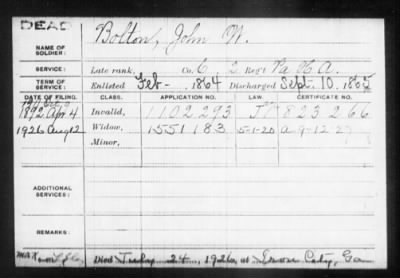 DEAD
NAME OF SOLDIER: Bolton, John W.
SERVICE: Late rank, Co. C, 2 Reg't Pa H. A.
TERM OF SERVICE: Enlisted Feb - 1864 Discharged Sept. 10, 1865
DATE OF FILING. CLASS. APPLICATION NO. LAW. CERTIFICATE NO.
1892 Apr 4 Invalid, 1102293 823266
1926 Aug 12 Widow, 1551183 5-1-20 a 9-12-27
Minor,
ADDITIONAL SERVICES:
REMARKS:
Died July 24, 1926, at City, Ga